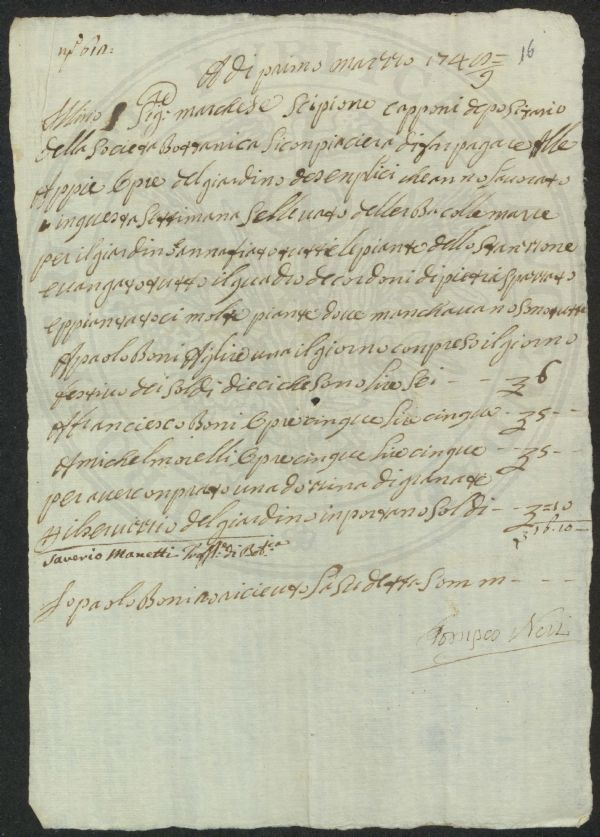 16
A di primo marzzo 174 8/9
Ill.mo Sig.re marchese Scipione Capponi depositario
della Societa Bottanica Si conpiaciera di far pagare Alle
Appie Opre del giardino de senplici che anno lavorato
in questa Settimana
per il giardino annafiato tutte le piante dello Stanzione
e vangato tutto il quadro de cordoni di pietri
e ppiantatoci molte piante dove manchavano Sono tutte
A paolo Boni A lire una il giorno conpreso il giorno
festivo dei Soldi dieci che Sono lire Sei - - 6
A francesco Boni Opre cinque lire cinque - 5 - -
A michel morelli Opre cinque lire cinque - 5 - -
per aver conprato una dozzina di granate
p il servizzio del giardino inportano Soldi - - 10
16 - 10 -
Saverio Manetti
Io paolo Boni o riceuto La Sudetta Somm - - -
Pompeo Neri